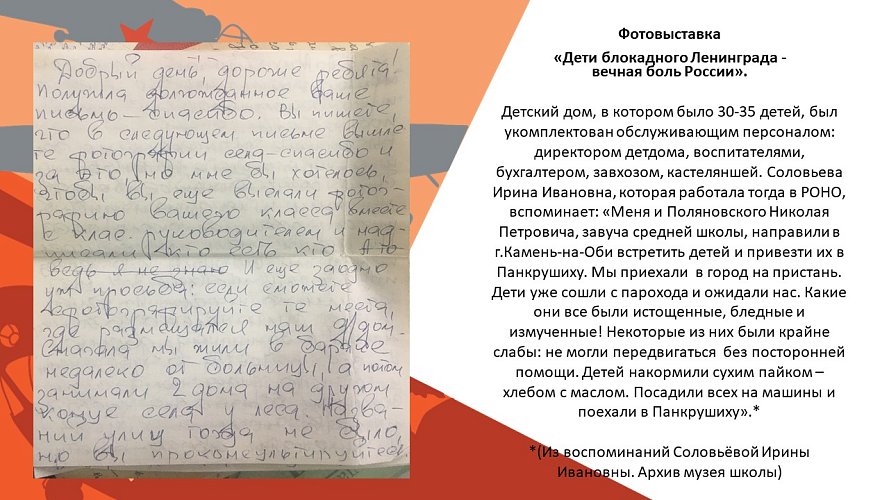 Добрый день, дорогие ребята!
Получила долгожданное ваше
письмо - спасибо. Вы пишете,
что в следующем письме вышле
те фотографии села - спасибо и
за это, но мне бы хотелось,
чтобы вы еще выслали фотог-
рафию вашего класса вместе
с клас. руководителем и над-
писали кто есть кто. А то
ведь я не знаю И еще заодно
уж просьба: если сможете
сфотографируйте те места,
где размещался наш д/дом.
Сначала мы жили в бараке
недалеко от больницы, а потом
занимали 2 дома на другом
конце села у леса. Назва-
ний улиц тогда не было,
но вы проконсультируйтесь
Фотовыставка
«Дети блокадного Ленинграда -
вечная боль России».
Детский дом, в котором было 30-35 детей, был
укомплектован обслуживающим персоналом:
директором детдома, воспитателями,
бухгалтером, завхозом, кастеляншей. Соловьева
Ирина Ивановна, которая работала тогда в РОНО,
вспоминает: «Меня и Поляновского Николая
Петровича, завуча средней школы, направили в
г.Камень-на-Оби встретить детей и привезти их в
Панкрушиху. Мы приехали в город на пристань.
Дети уже сошли с парохода и ожидали нас. Какие
они все были истощенные, бледные и
измученные! Некоторые из них были крайне
слабы: не могли передвигаться без посторонней
помощи. Детей накормили сухим пайком –
хлебом с маслом. Посадили всех на машины и
поехали в Панкрушиху».*
*(Из воспоминаний Соловьёвой Ирины
Ивановны. Архив музея школы)